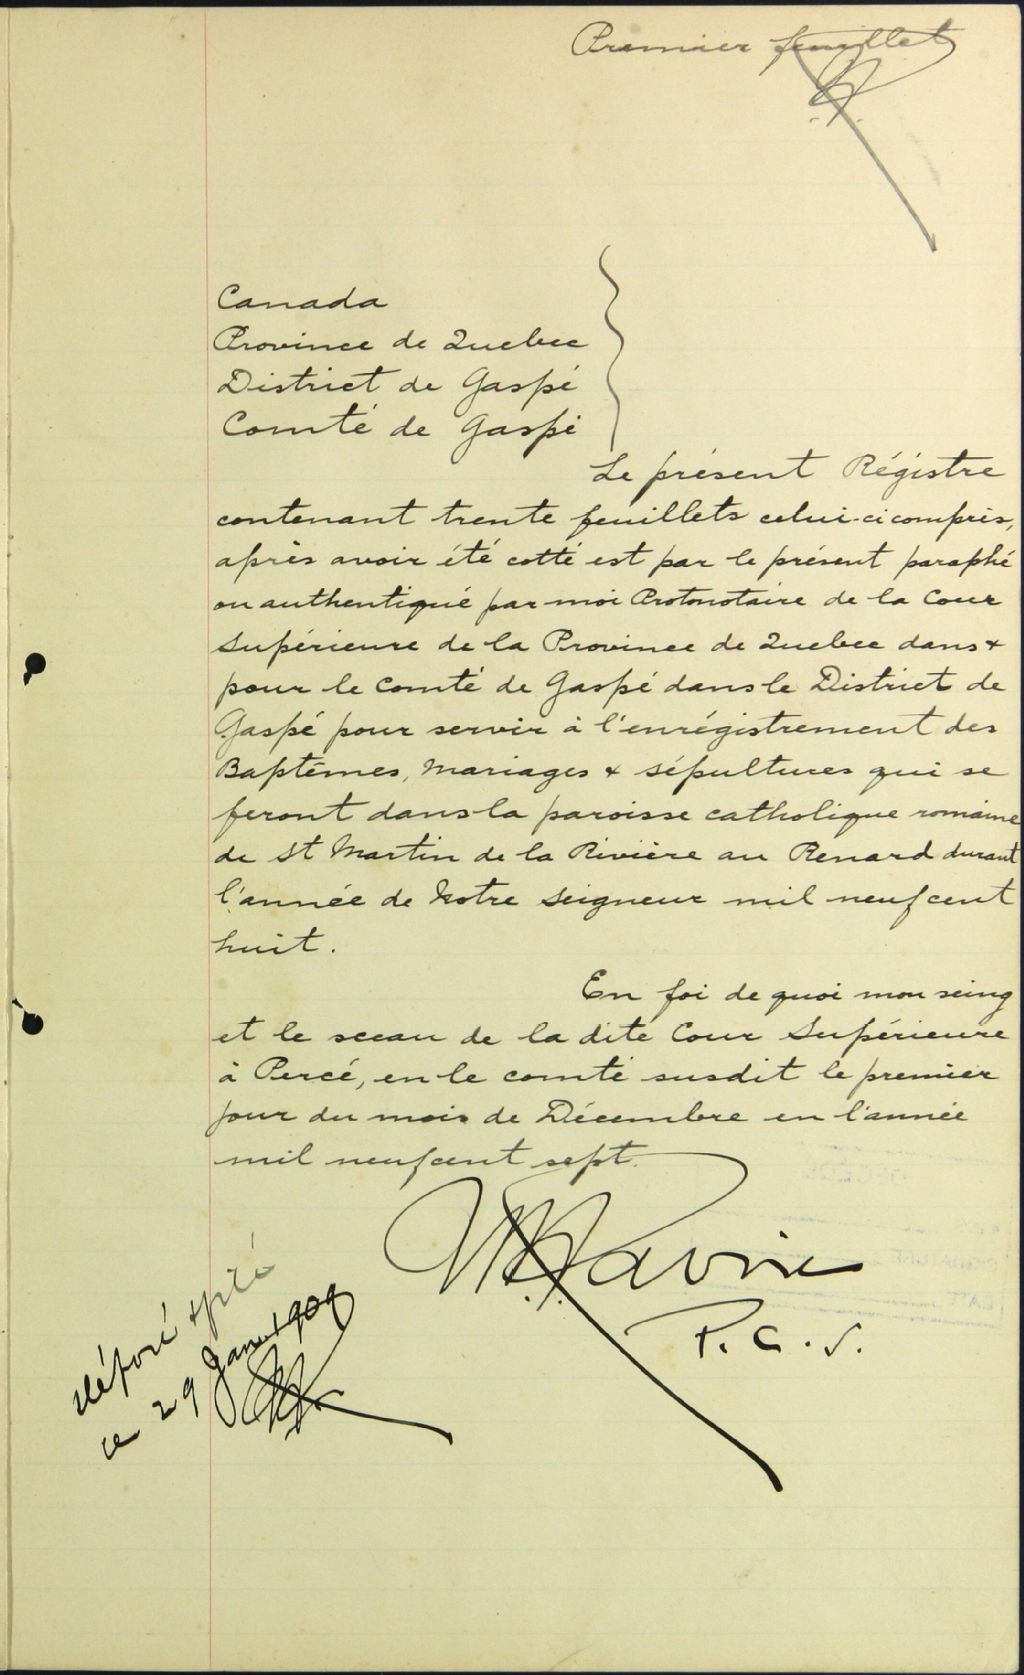 Premier feuillet
Canada
Province de Quebec
District de Gaspé
Comté de Gaspé
Le présent Régistre
contenant trente feuillets celui-ci compris,
après avoir été cotté est par le présent paraphé
ou authentiqué par moi Protonotaire de la Cour
Supérieure de la Province de Quebec dans &
pour le Comté de Gaspé dans le District de
Gaspé pour servir à l'enrégistrement des
Baptêmes, Mariages & sépultures qui se
feront dans la paroisse catholique romaine
de St Martin de la Rivière au Renard durant
l'année de Notre Seigneur mil neuf cent
huit.
En foi de quoi mon seing
et le sceau de la dite Cour Supérieure
à Percé, en le comté susdit le premier
jour du mois de Décembre en l'année
mil neuf cent sept.
Lavoie
P. C. S.
déposé
ce 29 Janv 1909